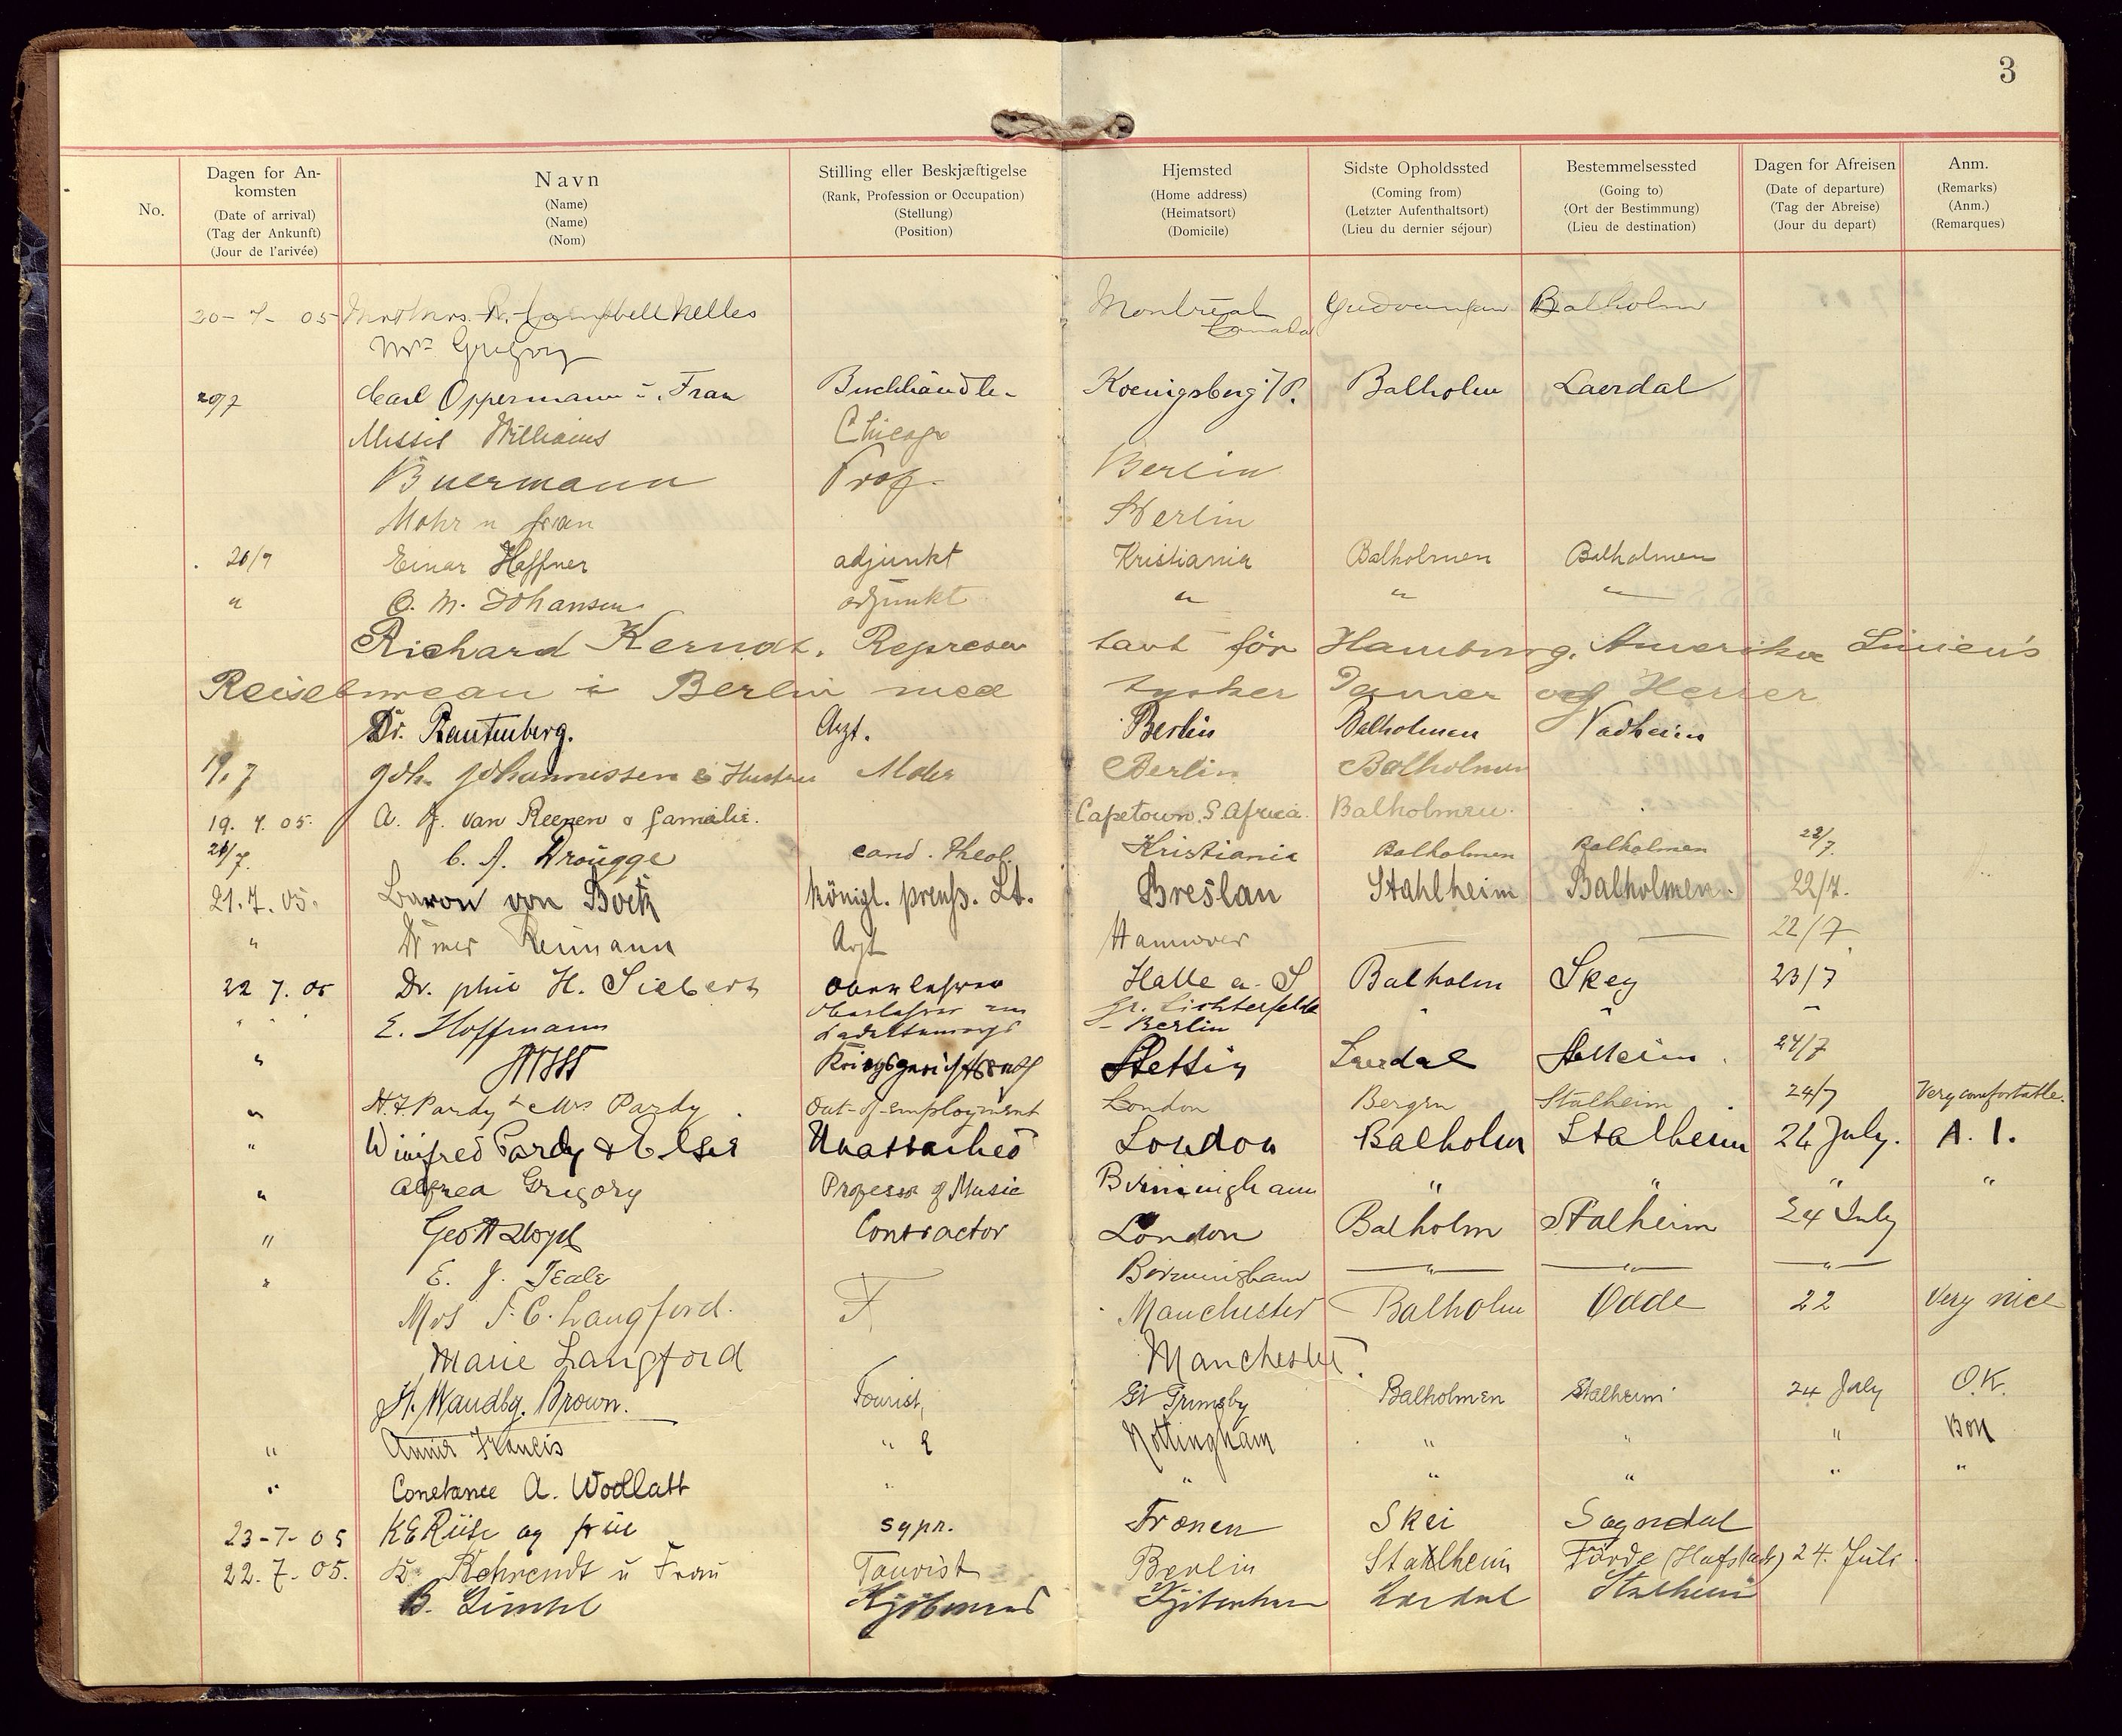 3
No. Dagen for An-komsten (Date of arrival) (Tag der Ankunft) (Jour de l'arivée)
Navn (Name) (Name) (Nom)
Stilling eller Beskjæftigelse (Rank, Profession or Occupation) (Stellung) (Position)
Hjemsted (Home address) (Heimatsort) (Domicile)
Sidste Opholdssted (Coming from) (Letzter Aufenthaltsort) (Lieu du dernier séjour)
Bestemmelsessted (Going to) (Ort der Bestimmung) (Lieu de destination)
Dagen for Afreisen (Date of departure) (Tag der Abreise) (Jour du depart)
Anm. (Remarks) (Anm.) (Remarques)
20-7-05 R. Campbell Nelles Montreal Canada Gudvangen Balholm
Mrs Gregory
20/7 Carl Oppermann u. Frau Buchhändler Koenigsberg i/P. Balholm Laerdal
Misses Williams Chicago
Buermann Prof. Berlin
Mohr u frau Berlin
20/7 Einar Haffner adjunkt Kristiania Balholmen Balholmen
" O. M. Johansen adjunkt " " "
Richard Kerndt. Represen tant för Hamburg. Amerika Linien's
Reisebureau i Berlin med tysker Damer og Herrer
Dr. Rautenberg. Arzt. Berlin Balholmen Vadheim
19.7 Joh. Johannissen & Hustru Maler Berlin Balholmen
19.7.05. A. J. van Reenen & familie. Capetown. S. Africa. Balholmen.
21/7. C. A. Drougge cand. theol. Kristiania Balholmen Balholmen 22/7.
21.7.05. Baron von königl. preuß. Lt. Breslau Stahlheim Balholmen. 22/7.
" Dr med Reimann Arzt Hannover 22/7
22 7. 05 Dr. phil H. Siebert Oberlehrer Halle a. S Balholm Skey 23/7
" " " E. Hoffmann Oberlehrer am Kadettencorps Gr. Lichterfelde - Berlin " " "
" Kriegsgerichtsrath Stettin Laerdal Stalheim. 24/7
" H. F. Pardy & Mrs Pardy. Out-of-employment London Bergen Stalheim. 24/7 Very comfortable.
" Winifred Pardy & Elsie Unattached London Balholm Stalheim 24 July. A. 1.
" Alfred Gregory Professor of Music Birmingham " " " "
" Geo H Lloyd Contractor London Balholm Stalheim 24 July
" E. J. Teale Birmingham " " "
Mrs F. C. Langford. Manchester Balholm Odde 22 Very nice
Marie Langford Manchester.
H. Waudby. Brown. Tourist, Gt Grimsby Balholmen Stalheim 24 July O.K.
" Annie Francis " Nottingham " " " Bon
" Constance A. Wodlatt " " " " " "
23-7-05 K E Riise og frue sypr. Tronen Skei Sogndal
22.7-05. Behrendt u Frau Tourist Berlin Stalheim Förde (Hafstad) 24. Juli.
B. Kjöbmand Kjöbenhavn Lærdal Stalheim